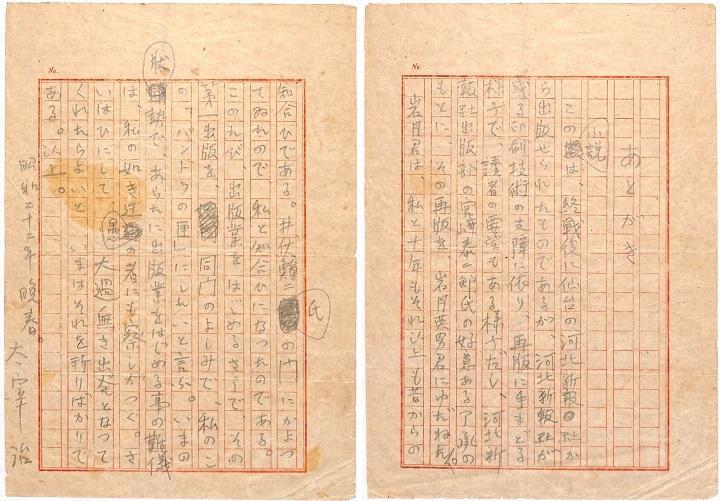 No.
あとがき
この小説は、終戦後に仙台の河北新報社か
ら出版せられたものであるが、河北新報社が
或る印刷技術の支障に依り、再版に手まどる
様子で、読者の要望もある様子だし、河北新
報社出版部の宮崎泰二郎氏の好意ある了承の
もとに、その再版を、岩月英男君にゆだねた。
岩月君は、私と十年もそれ以上も昔からの
No.
知合ひである。井伏鱒二氏の門にかよつ
てゐたので、私と知合ひになつたのである。
このたび、出版業をはじめるさうで、その
第一出版を、同門のよしみで、私のこ
の「パンドラの匣」にしたいと言ふ。いまの
状勢で、あらたに出版業をはじめる事の難儀
は、私の如き迂愚の者にも察しがつく。さ
いはひにして大過無き出発となつて
くれたらよいと、いまはそれを祈りばかりで
ある。以上。
昭和二十二年 晩春。
太宰治